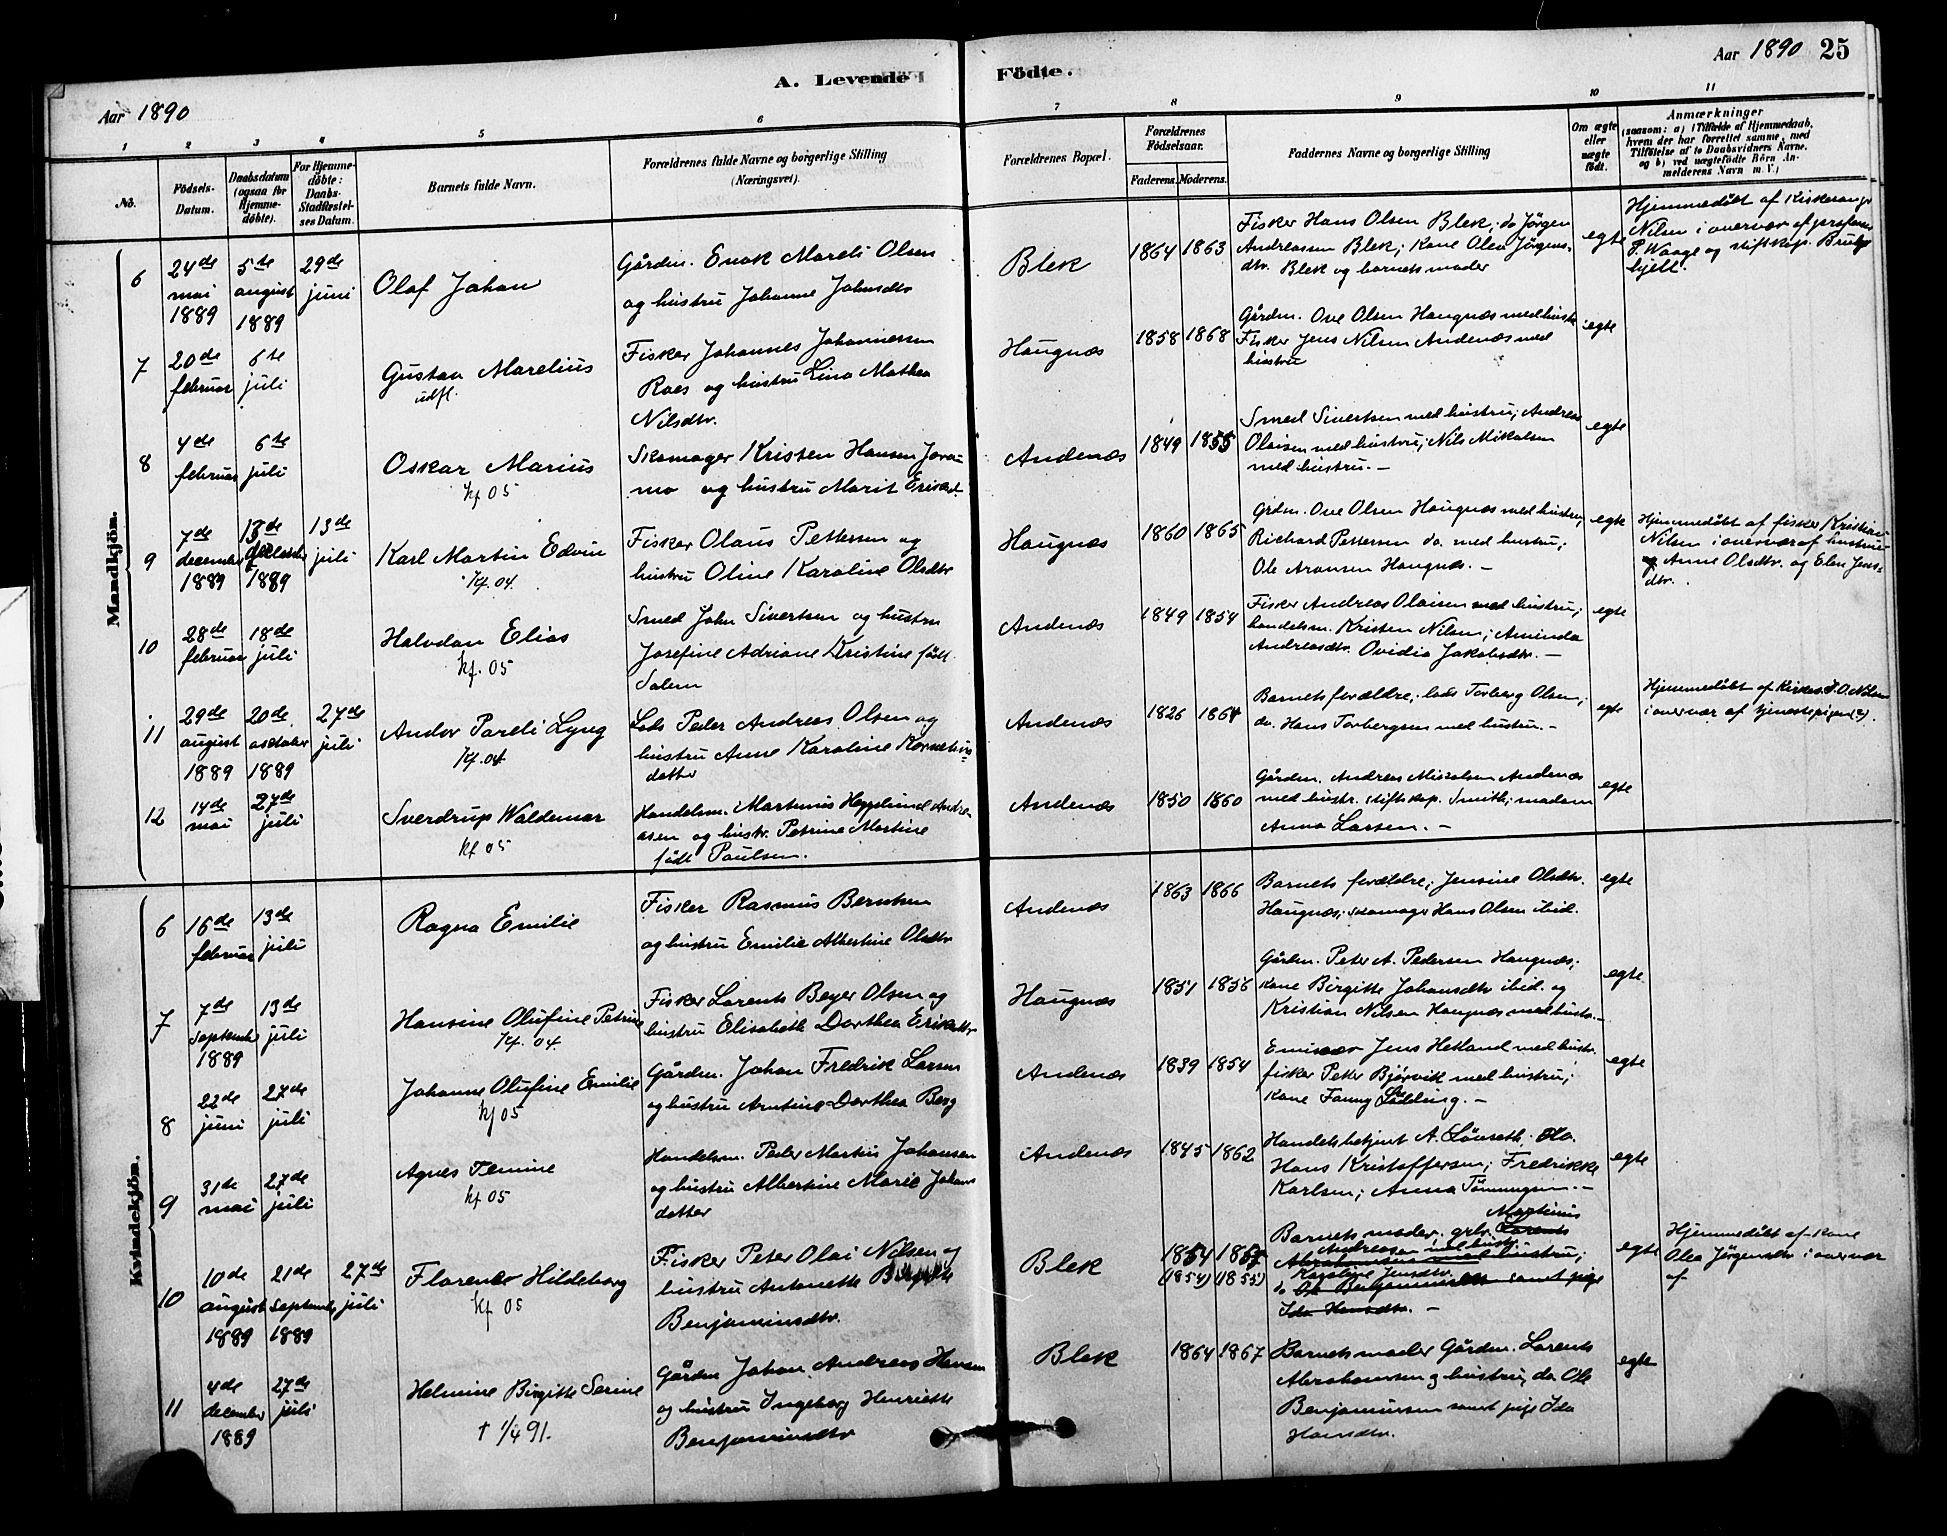 Aar 1890
A. Levende Födte.
Aar 1890 25
1 2 3 4 5 6 7 8 9 10 11
No.
Födsels-
Datum.
Daabsdatum
(ogsaa for
Hjemme-
döbte).
For Hjemme-
döbte:
Daabs-
Stadfæstel-
ses Datum.
Barnets fulde Navn.
Forældrenes fulde Navne og borgerlige Stilling
(Næringsvei).
Forældrenes Bopæl.
Forældrenes
Födselsaar.
Faderens. Moderens.
Faddernes Navne og borgerlige Stilling
Om ægte
eller
uægte
födt.
Anmærkninger
(saasom: a) i Tilfælde af Hjemmedaab,
hvem der har forrettet samme, med
Tilföielse af to Daabsvidners Navne,
og b) ved uægtefödte Börn An-
melderens Navn m. V.)
Mandkjön.
6
24de
mai
1889
5te
august
1889
29de
juni
Olaf Johan
Gården. Enok Mareli Olsen
og hustru Johanne Johnsdtr
Blek
1864 1863
Fisker Hans Olsen Blek; do Jørgen
Andreassen Blek; Kone Olea Jørgens-
dtr. Blek og barnets moder
egte
Hjemmedøbt af
Nilsen i overvær af
P. Waage og stiftskap.
7
20de
februar
6te
juli
Gustav Marelius
udfl.
Fisker Johannes Johannessen
Raes og hustru Lina Mathea
Nilsdtr.
Haugnæs
1858 1868
Gården. Ove Olsen Haugnæs med hustr.
Fisker Jens Nilsen Andenæs med
hustru
egte
8
4de
februar
6te
juli
Oskar Marius
kf 05
Skomager Kristen Hansen Jora-
mo og hustru Marit Eriksd.
Andenæs
1849 1855
Smed Sivertsen med hustru; Andreas
Olaisen med hustru; Nils Mikalsen
med hustru. —
egte
9
7de
december
1889
13de
december
1889
13de
juli
Karl Martin Edvin
kf. 04
Fisker Olaus Pettersen og
hustru Oline Karoline Olsdtr
Haugnæs
1860 1865
Grdm. Ove Olsen Haugnæs med hustru;
Richard Pettersen do. med hustru;
Ole Aronsen Haugnæs. —
egte
Hjemmedøbt af fisker Kristian
Nilsen i overvær af hustru
og Anne Olsdtr. og Elen Jens-
dtr.
10
28de
februar
18de
juli
Halvdan Elias
kf. 05
Smed John Sivertsen og hustru
Josefine Adriane Kristine født
Salem
Andenæs
1849 1854
Fisker Andreas Olaisen med hustru;
handelsm. Kristen Nilsen; Aminda
Andreasdtr. Ovidia Jakobsdtr. —
egte
11
29de
august
1889
20de
october
1889
27de
juli
Andor Pareli Lyng
kf. 04
Lods Peder Andreas Olsen og
hustru Anne Karoline Kornelius-
datter
Andenæs
1826 1864
Barnets forældre; lods Torberg Olsen;
do. Hans Torbergsen med hustru. —
egte
Hjemmedøbt af Kirkes. P. O. Nilsen
i overvær af tjenestepigen(?).
12
14de
mai
27de
juli
Sverdrup Waldemar
kf 05
Handelsm. Martinus Hegglund Andre-
asen og hustr. Petrine Martine
født Paulsen.
Andenæs
1850 1860
Gården. Andreas Mikalsen Andenæs
med hustr. stiftskap. Smith; madam
Anna Larsen. —
egte
Kvindekjön.
6
16de
februar
13de
juli
Ragna Emilie
Fisker Rasmus Berntsen
og hustru Emilie Albertine Olsdtr
Andenæs
1863 1866
Barnets forældre; Jensine Olsdtr.
Haugnæs; skomager Hans Olsen ibid.
egte
7
7de
september
1889
13de
juli
Hansine Olufine Petrine
kf. 04
Fisker Lorents Beyer Olsen og
hustru Elisabeth Dorthea Eriksdtr
Haugnæs
1851 1856
Gården. Peter A. Pedersen Haugnæs;
kone Birgitte Johansdtr ibid. og
Kristian Nilsen Haugnæs med hustr. —
egte
8
22de
juni
27de
juli
Johanne Olufine Emilie
kf 05
Gården. Johan Fredrik Larsen
og hustru Arntine Dorthea Berg
Andenæs
1839 1854
Emissær Jens Hetland med hustr.
fisker Peter Bjørvik med hustru;
kone Fanny Sødding. —
egte
9
31te
mai
27de
juli
Agnes Temine
kf 05
Handelsm. Peder Martin Johansen
og hustru Albertine Marie Johans
datter
Andenæs
1845 1862
Handelsbetjent A. Lønseth; do.
Hans Kristoffersen; Fredrikke
Karlsen; Anna Tømmingen. —
egte
10
10de
august
1889
21de
september
1889
27de
juli
Florence Hildeborg
kf 05
Fisker Peter Olai Nilsen og
hustru Antonette Birgitte
Benjaminsdtr.
Blek
1854 1855
(1854) (1855)
Martinus
Barnets moder; grbr. Lorents
Andreasen med hustr.
Abrahamsen med hustru;
Jensdtr.
do Ole Benjaminsen samt pige
Ida Hansdtr. —
egte
Hjemmedøbt af kone
Olea Jørgensdtr i overvær
af
11
4de
december
1889
27de
juli
Helmine Birgitte Serine
† 1/4 91.
Gården Johan Andreas Hansen
og hustru Ingeborg Henriette
Benjaminsdtr
Blek
1864 1867
Barnets moder Gården. Lorents
Abrahamsen og hustru; do Ole
Benjaminsen samt pige Ida
Hansdtr.
egte